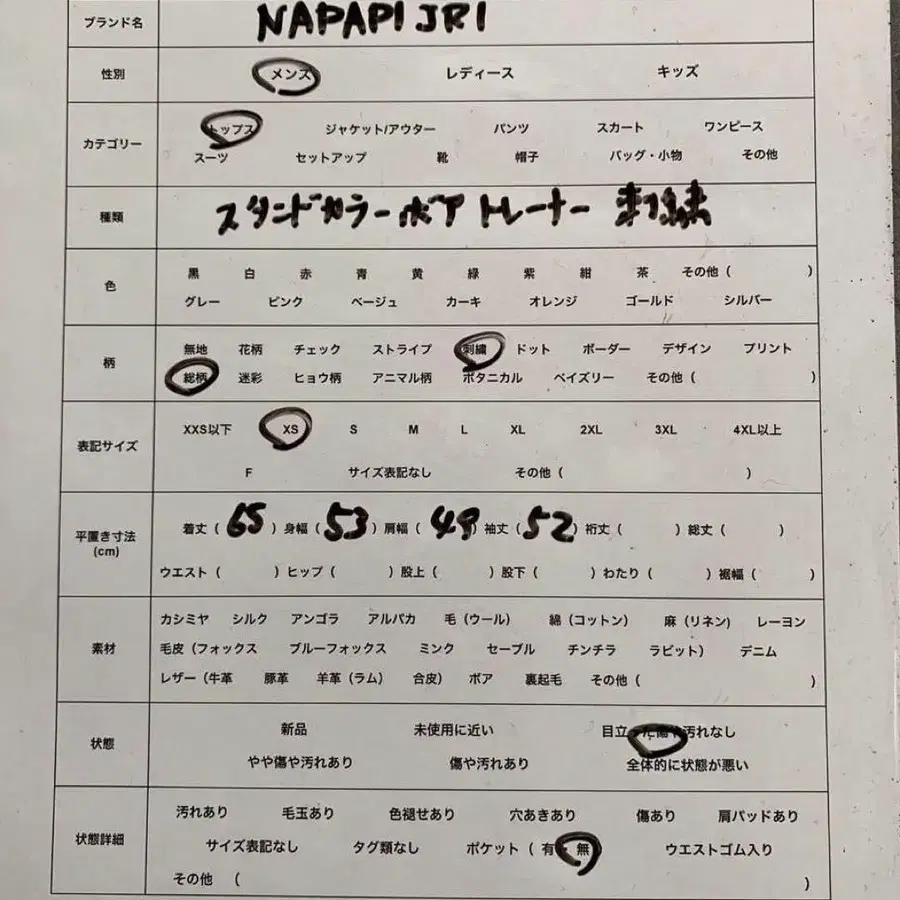 ブランド名 NAPAPIJRI
性別 メンズ レディース キッズ
カテゴリー
トップス ジャケット/アウター パンツ スカート ワンピース
スーツ セットアップ 靴 帽子 バッグ・小物 その他
種類 スタンドカラーボア トレーナー 刺繍
色
黒 白 赤 青 黄 緑 紫 紺 茶 その他 ( )
グレー ピンク ベージュ カーキ オレンジ ゴールド シルバー
柄
無地 花柄 チェック ストライプ 刺繍 ドット ボーダー デザイン プリント
総柄 迷彩 ヒョウ柄 アニマル柄 ボタニカル ペイズリー その他 ( )
表記サイズ
XXS以下 XS S M L XL 2XL 3XL 4XL以上
F サイズ表記なし その他 ( )
平置き寸法
(cm)
着丈 ( 65 ) 身幅 ( 53 ) 肩幅 ( 49 ) 袖丈 ( 52 ) 裄丈 ( ) 総丈 ( )
ウエスト ( ) ヒップ ( ) 股上 ( ) 股下 ( ) わたり ( ) 裾幅 ( )
素材
カシミヤ シルク アンゴラ アルパカ 毛 (ウール) 綿 (コットン) 麻 (リネン) レーヨン
毛皮 (フォックス ブルーフォックス ミンク セーブル チンチラ ラビット) デニム
レザー (牛革 豚革 羊革 (ラム) 合皮) ボア 裏起毛 その他 ( )
状態
新品 未使用に近い 目立った傷や汚れなし
やや傷や汚れあり 傷や汚れあり 全体的に状態が悪い
状態詳細
汚れあり 毛玉あり 色褪せあり 穴あきあり 傷あり 肩パッドあり
サイズ表記なし タグ類なし ポケット ( 有・無 ) ウエストゴム入り
その他 ( )